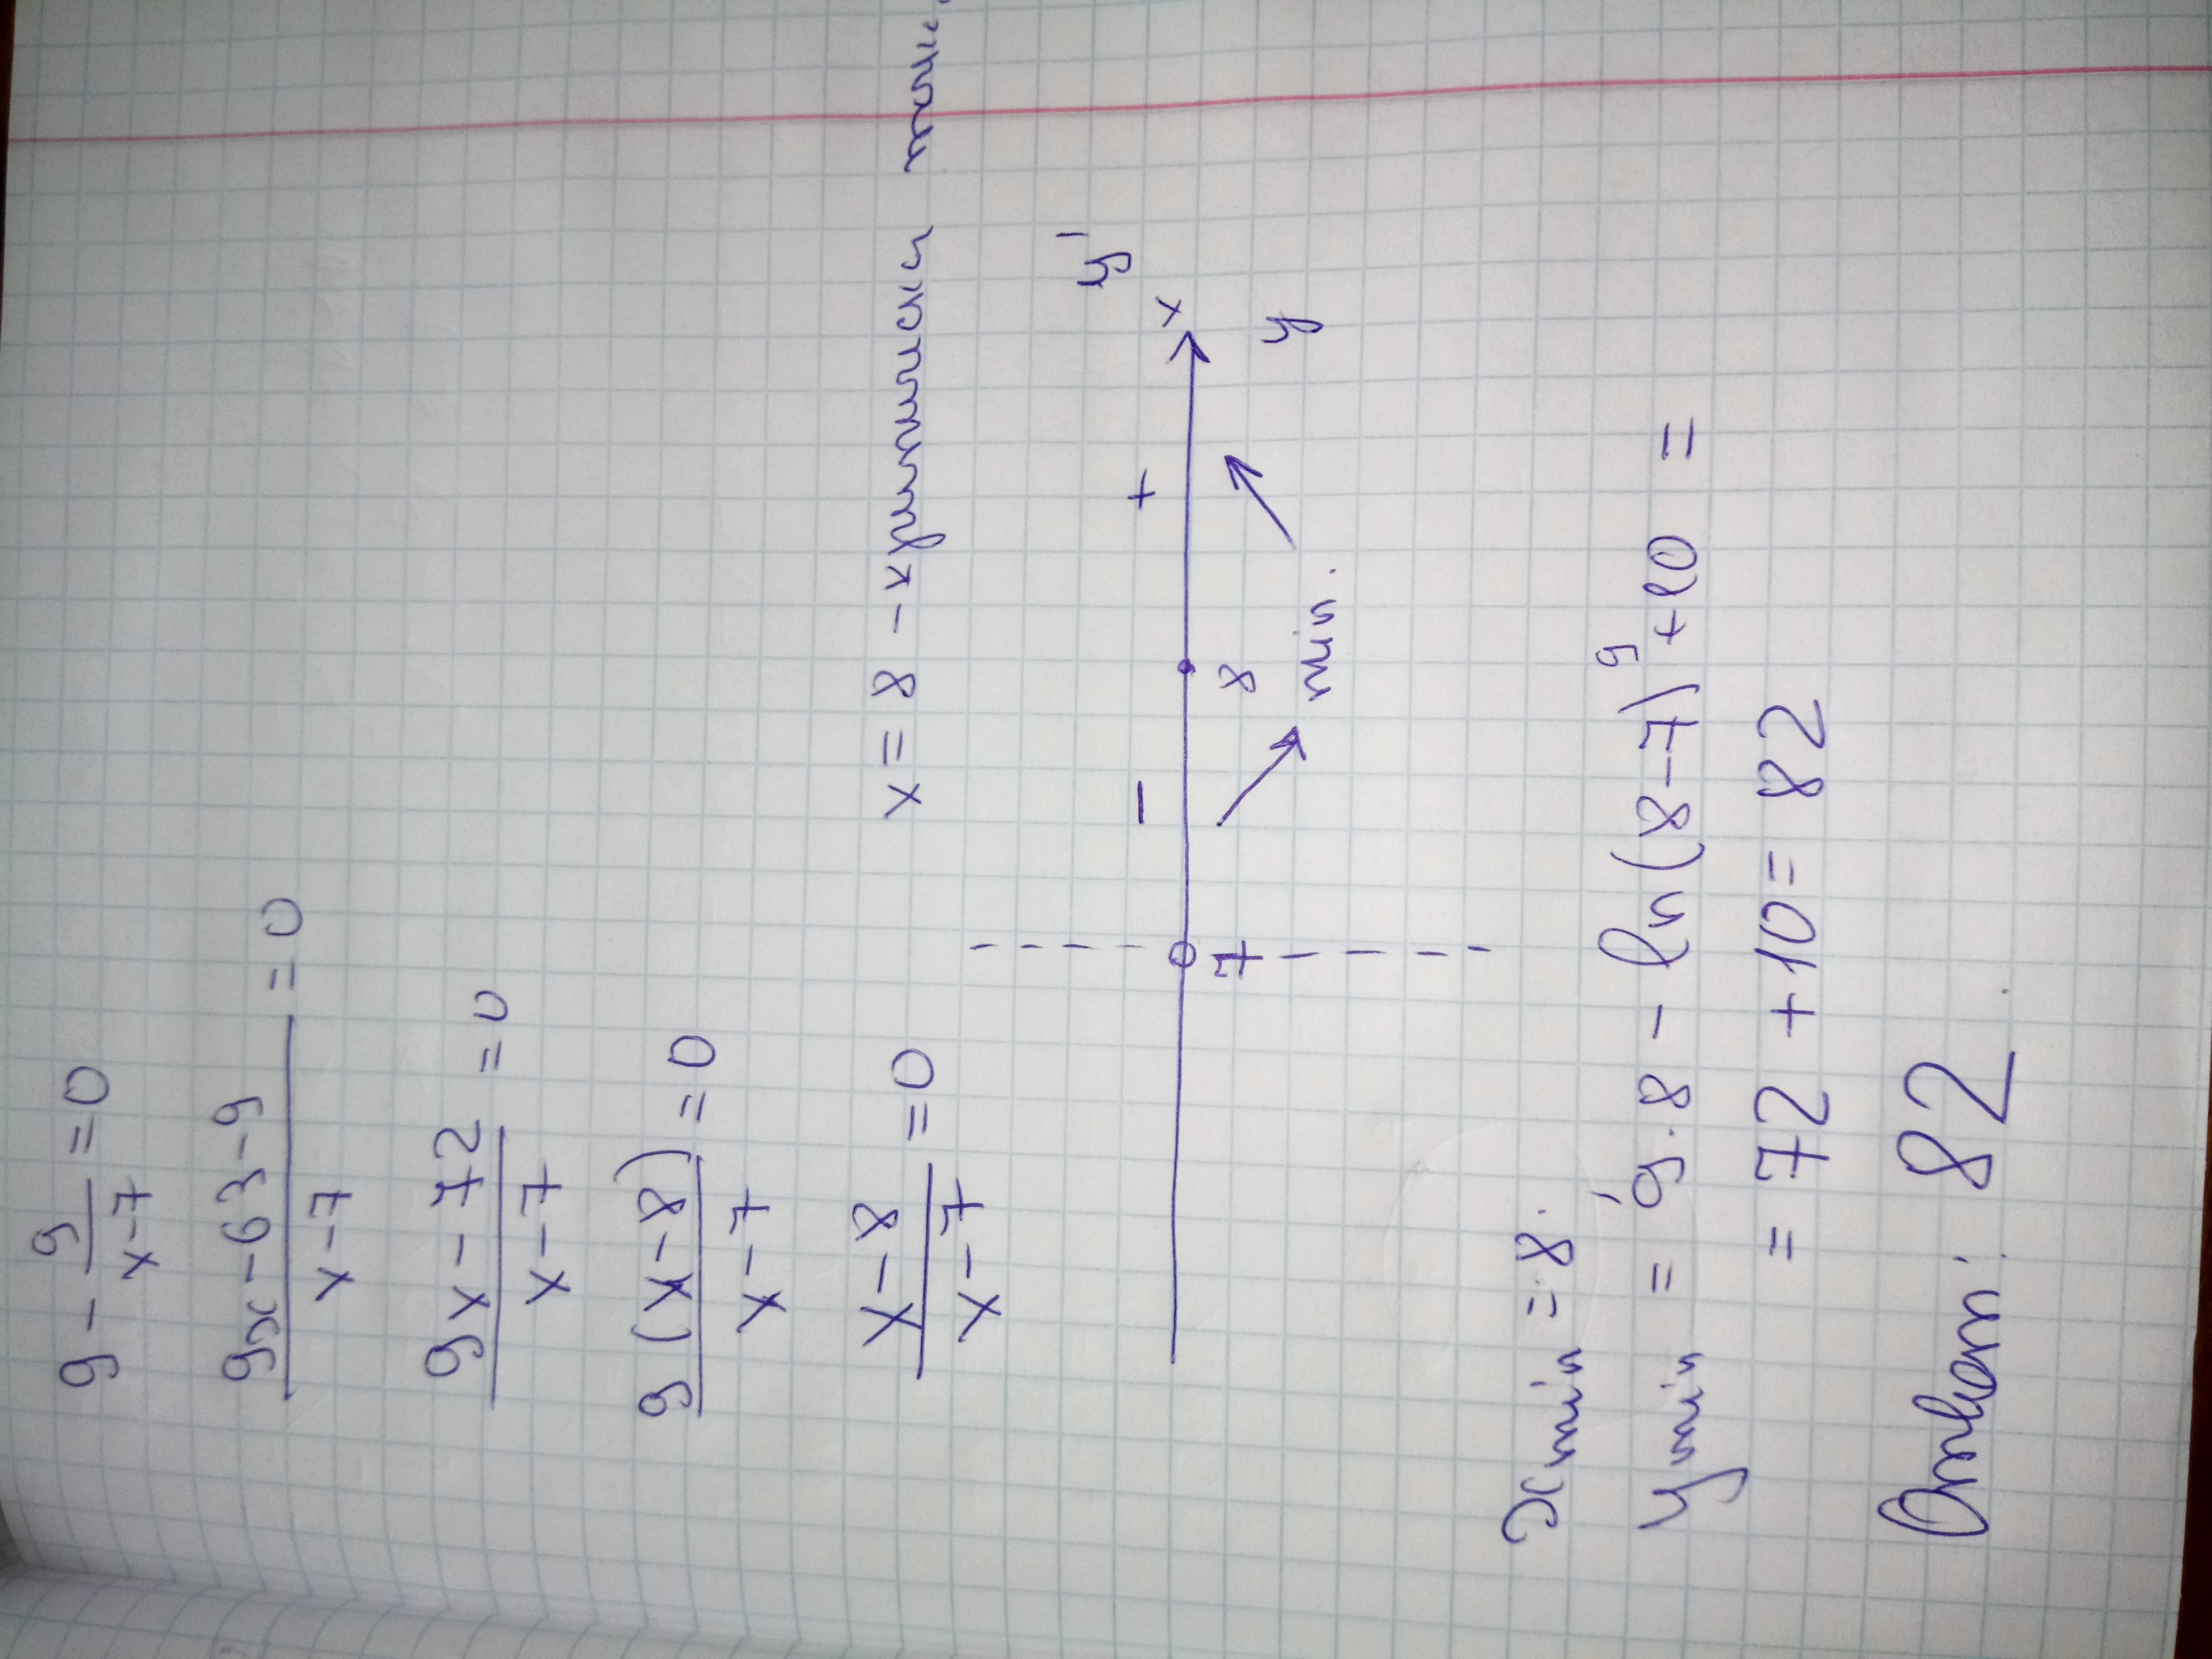 9 - 9/(x-7) = 0
(9x - 63 - 9)/(x-7) = 0
(9x - 72)/(x-7) = 0
9(x-8)/(x-7) = 0
(x-8)/(x-7) = 0
x = 8 -
y'
- + x
7 8 y
min.
xmin = 8.
ymin = 9·8 - ln(8-7)⁹ + 10 =
= 72 + 10 = 82
Ответ: 82.